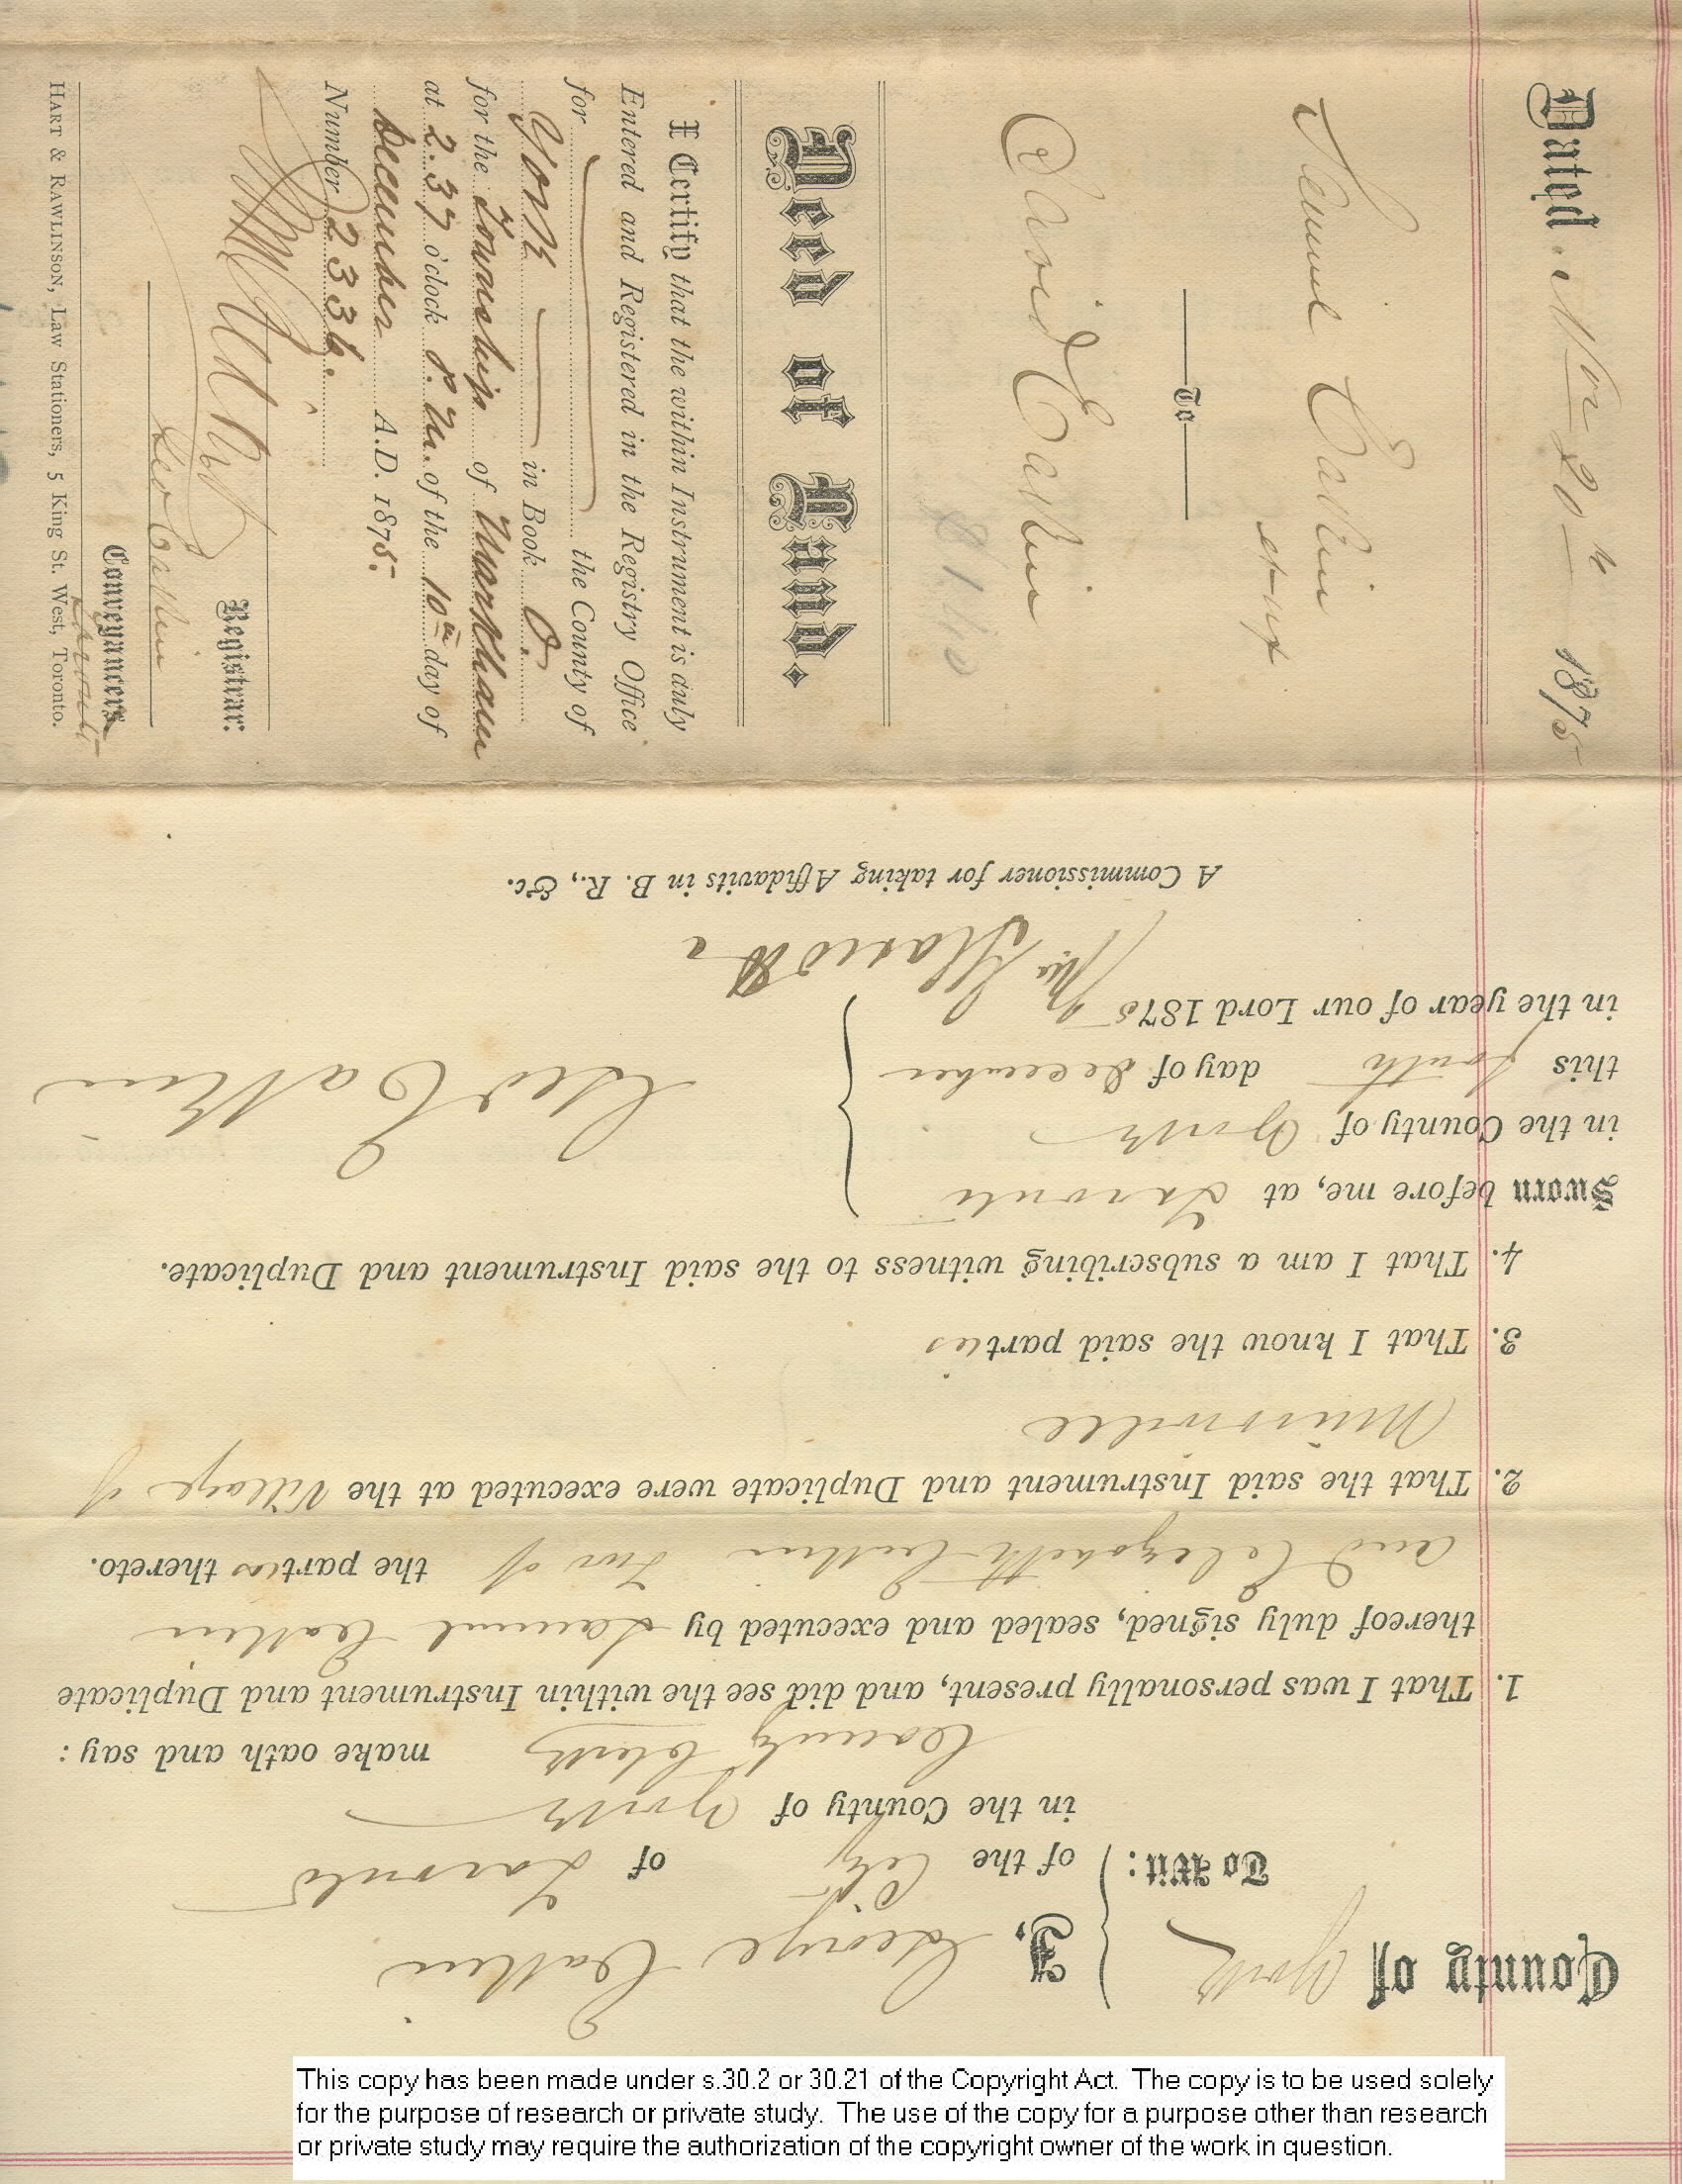 Dated Nov 20th 1875
Samuel Eakin
et ux
To
David Eakin
Deed of Land.
I Certify that the within Instrument is duly
Entered and Registered in the Registry Office
for the County of
York in Book O.
for the Township of Markham
at 2.37 o'clock P.M. of the 10th day of
December A.D. 1875.
Number 2336.
Registrar.
Geo Eakin
Conveyancer
Toronto
HART & RAWLINSON, Law Stationers, 5 King St. West, Toronto.
County of York
To Wit:
I, George Eakin
of the City of Toronto
in the County of York
County Clerk make oath and say:
1. That I was personally present, and did see the within Instrument and Duplicate
thereof duly signed, sealed and executed by Samuel Eakin
and Elizabeth Eakin two of the parties thereto.
2. That the said Instrument and Duplicate were executed at the Village of
Unionville
3. That I know the said parties
4. That I am a subscribing witness to the said Instrument and Duplicate.
Sworn before me, at Toronto
in the County of York
this tenth day of December
in the year of our Lord 1875
Geo Eakin
A Commissioner for taking Affidavits in B. R., &c.
This copy has been made under s.30.2 or 30.21 of the Copyright Act. The copy is to be used solely
for the purpose of research or private study. The use of the copy for a purpose other than research
or private study may require the authorization of the copyright owner of the work in question.